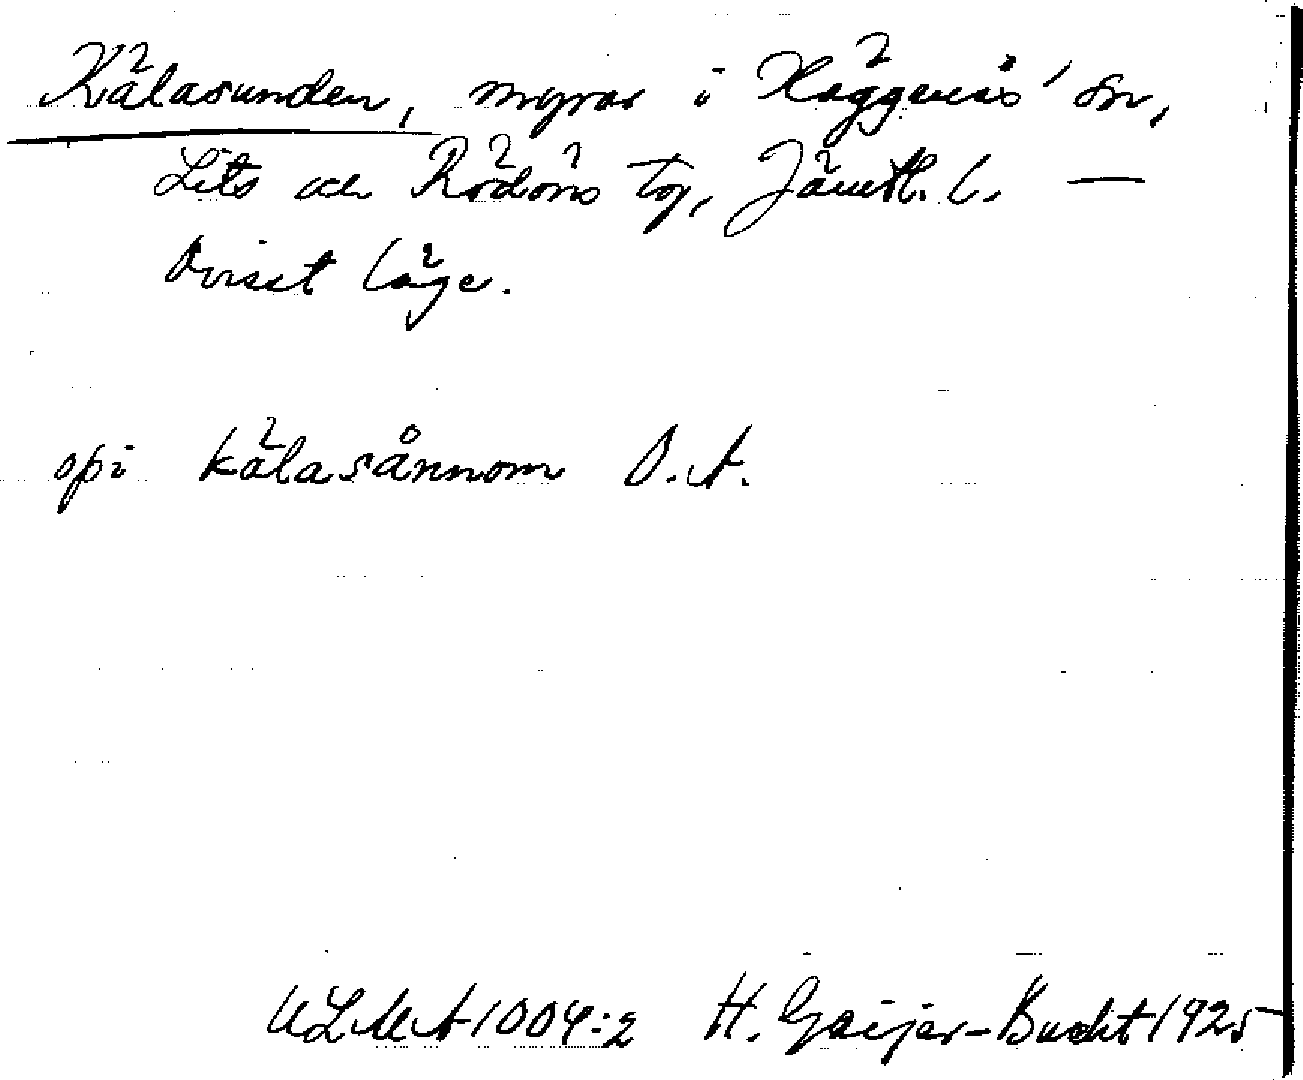 Kälasunden, myrar i Häggenås sn,
Lits och Rödöns tg, Jämtl. l. —
Ovisst läge.
opi kälasånnom O.A.
ULMA 1004:2 H. Geijer-Bucht 1925